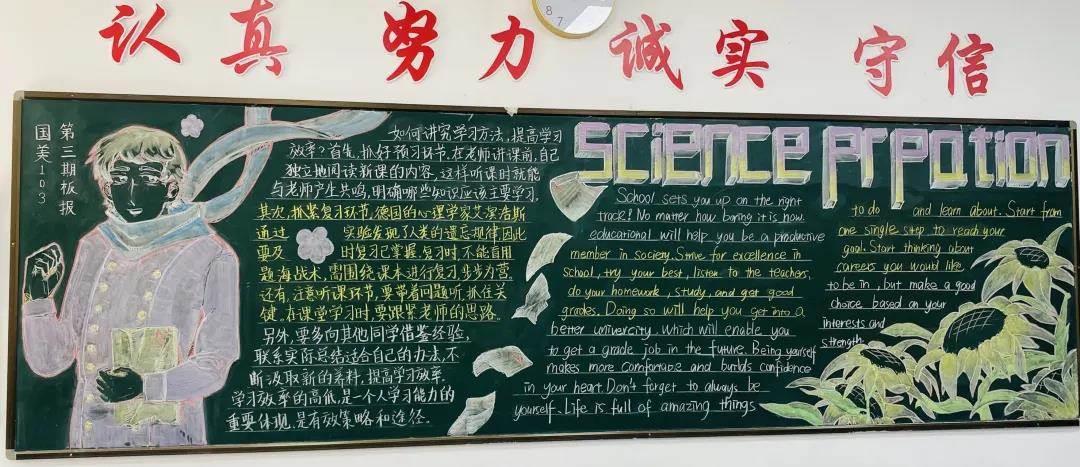 认真 努力 诚实 守信
8
7
第三期板报
国美103
如何讲究学习方法,提高学习
效率?首先,抓好预习环节,在老师讲课前,自己
独立地阅读新课的内容,这样听课时就能
与老师产生共鸣,明确哪些知识应该主要学习,
其次,抓紧复习环节,德国的心理学家艾滨浩斯
通过 实验发现了人类的遗忘规律,因此
要及 时复习已掌握,复习时,不能盲用
题海战术,需围绕课本进行复习,步步为营
还有,注意听课环节,要带着问题听,抓住关
键,在课堂学习时要跟紧老师的思路.
另外,要多向其他同学借鉴经验,
联系实际总结适合自己的办法,不
断汲取新的养料,提高学习效率.
学习效率的高低,是一个人学习能力的
重要体现,是有效策略和途径。
science prpation
School sets you up on the right
track! No matter how boring it is now.
educational will help you be a productive
member in society. Strive for excellence in
school, try your best, listen to the teachers,
do your homework, study, and get good
grades. Doing so will help you get into a
better univercity. Which will enable you
to get a grade job in the future. Being yourself
makes more comfortable and builds confidence
in your heart. Don't forget to always be
yourself. Life is full of amazing things
to do and learn about. Start from
one single step to reach your
goal. Start thinking about
careers you would like
to be in, but make a good
choice based on your
interests and
strength.